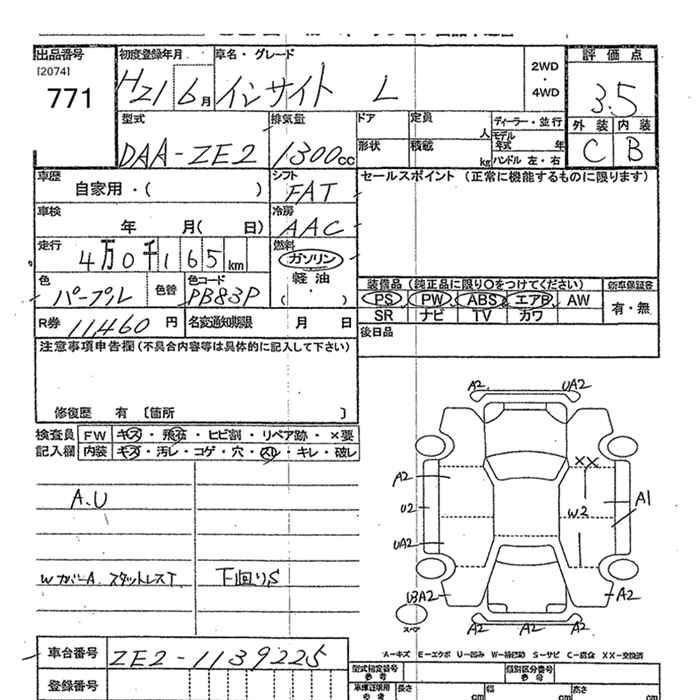 出品番号
[2074]
771
初度登録年月
H21 6月
車名・グレード
インサイト L
2WD
・
4WD
評価点
3.5
外装 内装
C B
型式
DAA-ZE2
排気量
1300cc
ドア
定員
人
形状
積載
kg
ディーラー・並行
モデル
年式 年
ハンドル 左・右
車歴
自家用・( )
シフト
FAT
車検
年 月( 日)
冷房
AAC
走行
4万0千165km
燃料
ガソリン
軽油
( ・ )
色
パープル
色替
色コード
PB83P
R券 11460円
名変通知期限 月 日
セールスポイント (正常に機能するものに限ります)
装備品 (純正品に限り〇をつけてください)
PS PW ABS エアB AW
SR ナビ TV カワ
新車保証書
有・無
後日品
注意事項申告欄(不具合内容等は具体的に記入して下さい)
修復歴 有 〔箇所 〕
検査員
記入欄
FW キズ・飛石・ヒビ割・リペア跡・×要
内装 キズ・汚レ・コゲ・穴・スレ・キレ・破レ
A.U
WカバーA スタットレスT
下回りS
A2 UA2
XX
A2
U2
W2
A1
UA2
U3A2
A2
スペア
A2 A2
A-キズ E-エクボ U-凹み W-補修跡 S-サビ C-腐食 XX-交換済
車台番号
ZE2-1139225
登録番号
型式指定番号
参考
類別区分番号
参考
車庫証明用
参考
長さ cm
幅 cm
高さ cm